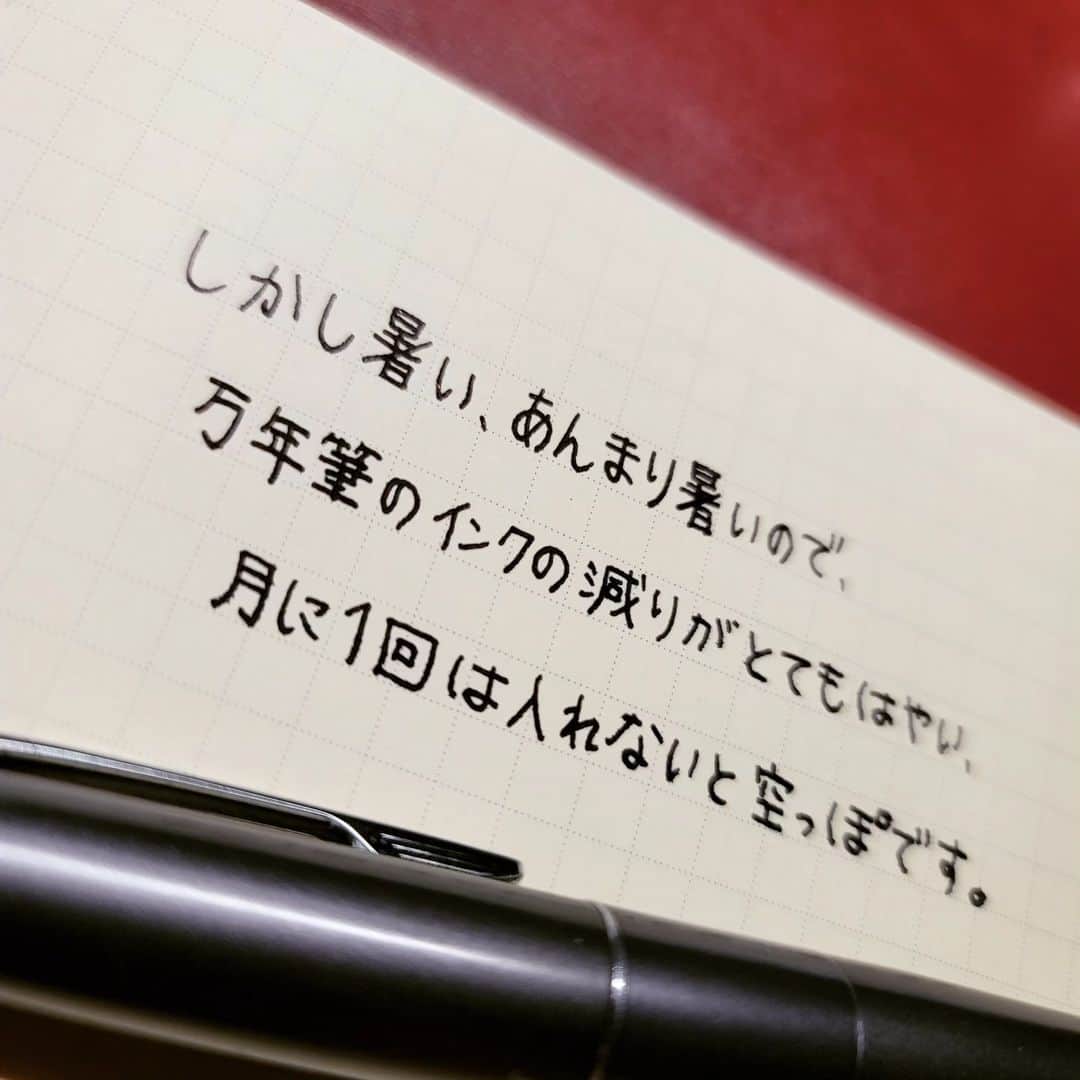 しかし暑い、あんまり暑いので、
万年筆のインクの減りがとてもはやい、
月に1回は入れないと空っぽです。